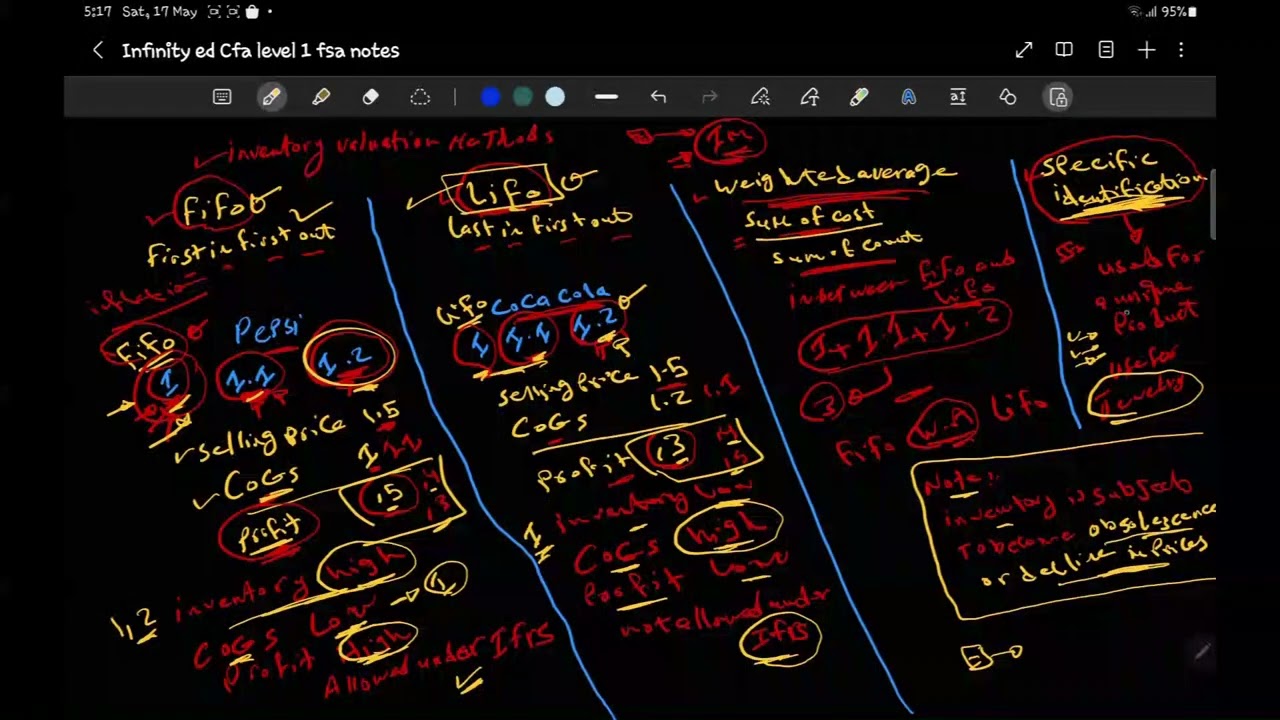 5:17 Sat, 17 May
95%
Infinity ed Cfa level 1 fsa notes
inventory valuation Methods
Im
fifo
First in first out
inflation
Fifo Pepsi
1 1.1 1.2
selling price 1.5
CoGs 1
Profit .5
inventory high
CoGs Low
Profit High
Allowed under Ifrs
1.2
1
Lifo
last in first out
Lifo Coca cola
1 1.1 1.2
selling Price 1.5
CoGs 1.2 1.1
Profit .3
inventory low
CoGs high
Profit Low
not allowed under
Ifrs
1
weighted average
= sum of cost
sum of count
in between fifo and
lifo
1+1.1+1.2
3
Fifo W.A Lifo
Specific
identification
used for
a unique
Product
like for
Jewelry
Note:
inventory is subject
To become obsolescence
or decline in Prices